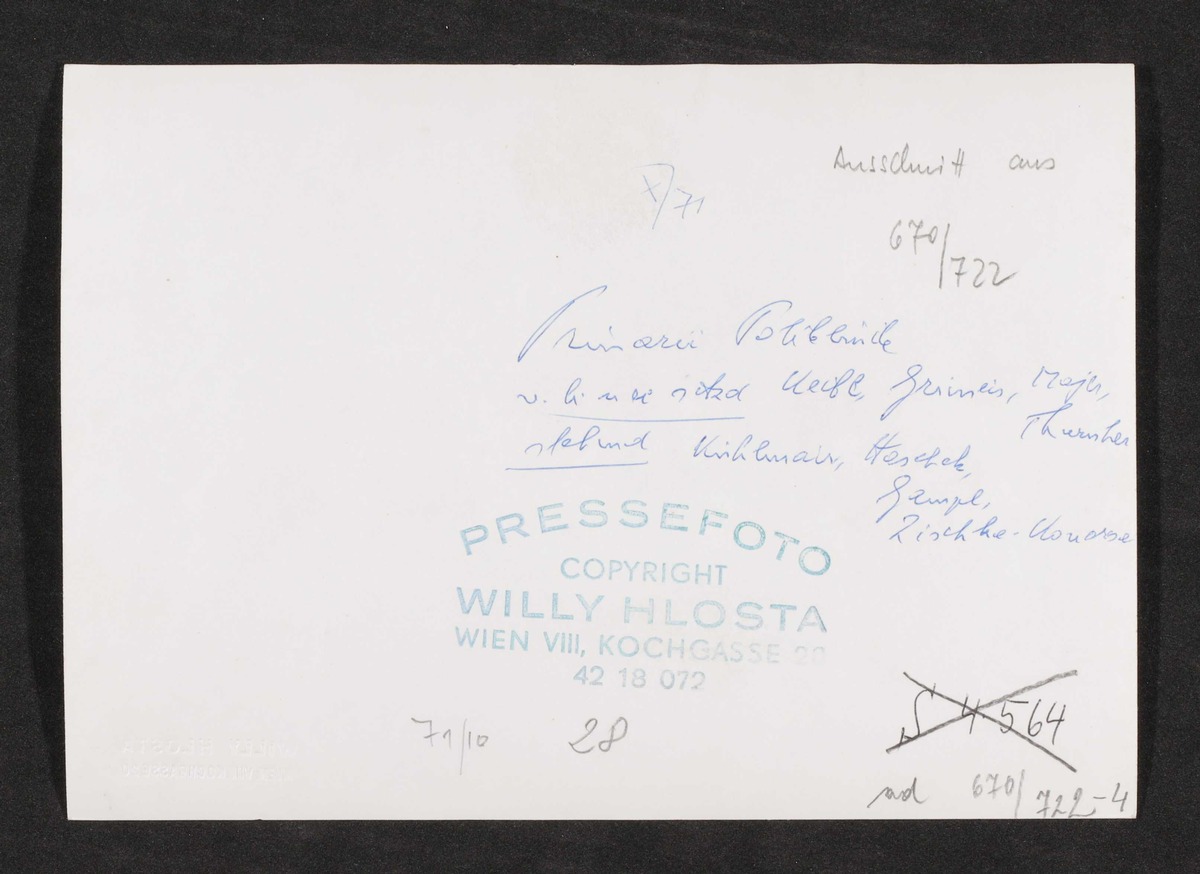 Ausschnitt aus
X/71
670/722
Primarii Poliklinik
v. li n re sitzd Keibl, Grüneis, Majer,
Thurnher
stehend Kühlmair, Haschek,
Gampl,
Zischka-Konorsa
PRESSEFOTO
COPYRIGHT
WILLY HLOSTA
WIEN VIII, KOCHGASSE 20
42 18 072
71/10 28
S 4.564
ad 670/722-4
WILLY HLOSTA